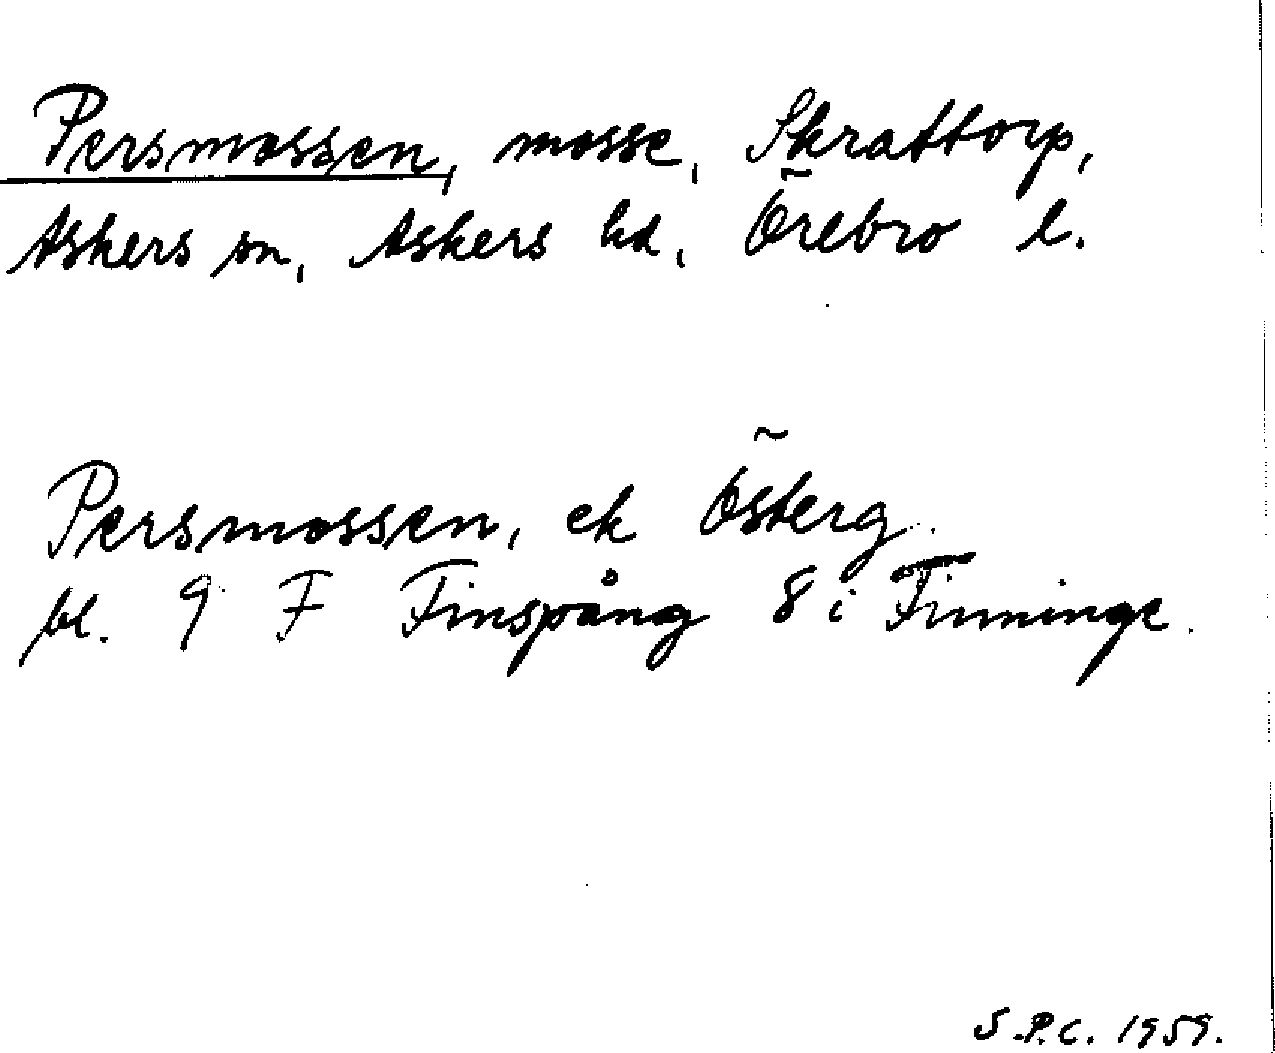 Persmossen, mosse, Skrattorp,
Askers sn, Askers hd, Örebro l.
Persmossen, ek Österg.
bl. 9 F Finspång 8 i Finninge.
S.P.C. 1959.